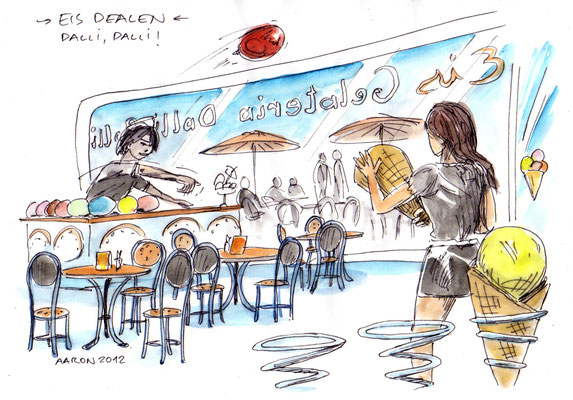 → EIS DEALEN ←
DALLi, DALLi!
Gelateria Dalli Dalli
AARON 2012